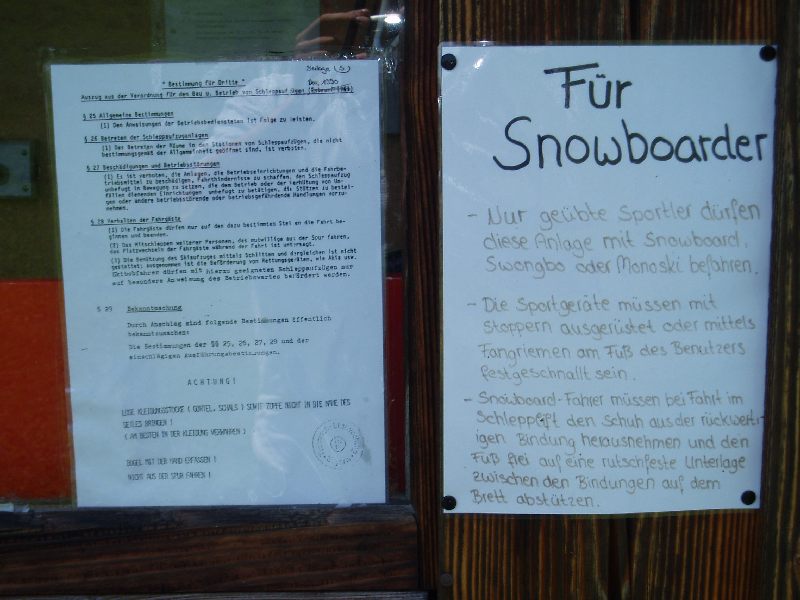 Beilage (5)
" Bestimmung für Dritte "
Dez. 1990
Auszug aus der Verordnung für den Bau u. Betrieb von Schleppaufzügen
§ 25 Allgemeine Bestimmungen
(1) Den Anweisungen der Betriebsbediensteten ist Folge zu leisten.
§ 26 Betreten der Schleppaufzuganlagen
(1) Das Betreten der Räume in den Stationen von Schleppaufzügen, die nicht
bestimmungsgemäß der Allgemeinheit geöffnet sind, ist verboten.
§ 27 Beschädigungen und Betriebsstörungen
(1) Es ist verboten, die Anlagen, die Betriebseinrichtungen und die Fahrbe-
triebsmittel zu beschädigen, Fahrthindernisse zu schaffen, den Schleppaufzug
unbefugt in Bewegung zu setzen, die dem Betrieb oder der Verhütung von Un-
fällen dienenden Einrichtungen unbefugt zu betätigen, die Stützen zu bestei-
gen oder andere betriebsstörende oder betriebsgefährdende Handlungen vorzu-
nehmen.
§ 28 Verhalten der Fahrgäste
(1) Die Fahrgäste dürfen nur auf den dazu bestimmten Stellen die Fahrt be-
ginnen und beenden.
(2) Das Mitschleppen weiterer Personen, das mutwillige aus der Spur fahren,
das Platzwechseln der Fahrgäste während der Fahrt ist untersagt.
(3) Die Benützung des Skiaufzuges mittels Schlitten und dergleichen ist nicht
gestattet; ausgenommen ist die Beförderung von Rettungsgeräten, wie Akia usw.
Skibobfahrer dürfen mit hierzu geeigneten Schleppaufzügen nur
auf besondere Anweisung des Betriebswartes befördert werden.
§ 29 Bekanntmachung
Durch Anschlag sind folgende Bestimmungen öffentlich
bekanntzumachen:
Die Bestimmungen der §§ 25, 26, 27, 28 und der
einschlägigen Ausführungsbestimmungen.
ACHTUNG!
LOSE KLEIDUNGSSTÜCKE ( GÜRTEL, SCHALS ) SOWIE ZÖPFE NICHT IN DIE NÄHE DES
SEILES BRINGEN !
( AM BESTEN IN DER KLEIDUNG VERWAHREN )
BÜGEL MIT DER HAND ERFASSEN !
NICHT AUS DER SPUR FAHREN !
Für
Snowboarder
- Nur geübte Sportler dürfen
diese Anlage mit Snowboard,
Swongbo oder Monoski befahren.
- Die Sportgeräte müssen mit
Stoppern ausgerüstet oder mittels
Fangriemen am Fuß des Benutzers
festgeschnallt sein.
- Snowboard-Fahrer müssen bei Fahrt im
Schlepplift den Schuh aus der rückwert-
igen Bindung herausnehmen und den
Fuß frei auf eine rutschfeste Unterlage
zwischen den Bindungen auf dem
Brett abstützen.